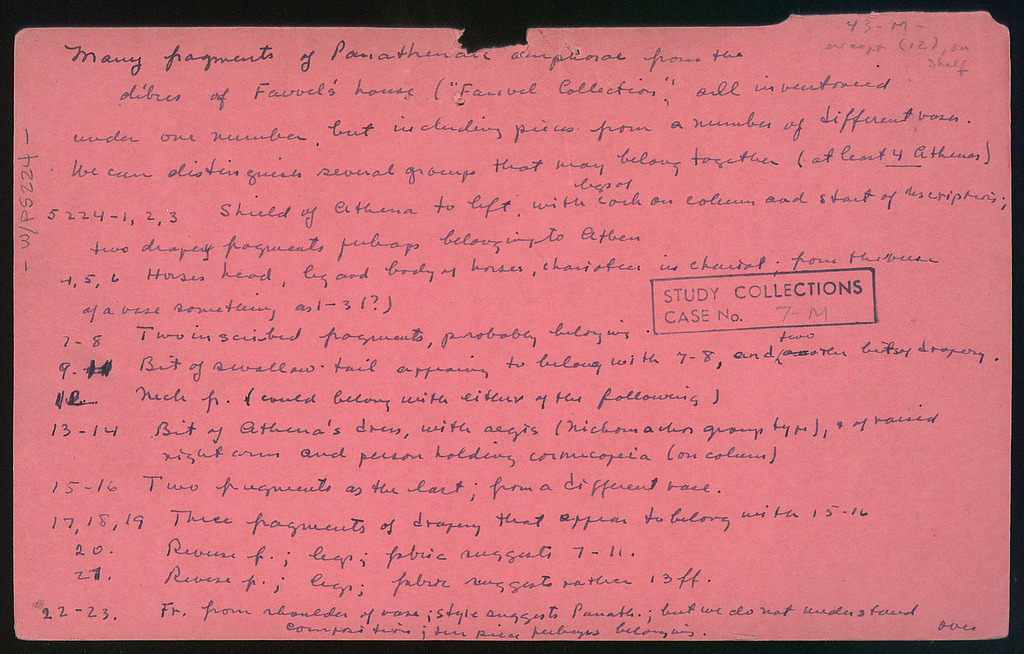 43-M-
except (12), on
shelf
Many fragments of Panathenaic amphorae from the
dibres of Fauvel's house ("Fauvel Collection" all inventoried
under one number, but including pieces from a number of different vases.
We can distinguish several groups that may belong together (at least 4 Athenas)
5224-1, 2, 3 Shield of Athena to left, with legs of cock on column and start of inscription;
two drapery fragments perhaps belonging to Athen
4, 5, 6 Horses head, leg and body of horses, charioteer in chariot; from the reverse
of a vase something as 1-3 (?)
STUDY COLLECTIONS
CASE No. 7-M
7-8 Two inscribed fragments, probably belonging.
9-11 Bit of swallow-tail appearing to belong with 7-8, and two bits of drapery.
12 Neck fr. (could belong with either of the following)
13-14 Bit of Athena's dress, with aegis (Nichomachos group type), & of raised
right arm and person holding cornucopeia (on column)
15-16 Two fragments as the last; from a different vase.
17, 18, 19 Three fragments of drapery that appear to belong with 15-16
20. Reverse fr.; legs; fabric suggests 7-11.
21. Reverse fr.; legs; fabric suggests rather 13 ff.
22-23. Fr. from shoulder of vase; style suggests Panath.; but we do not understand
composition; piece perhaps belonging.
over
- W/P5224 -